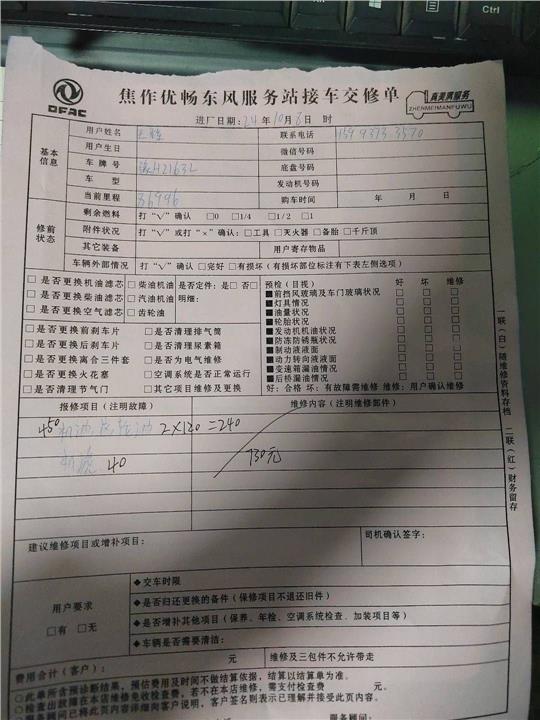 Ctrl
DFAC
焦作优畅东风服务站接车交修单
真美真服务
ZHENMEIZHENFUWU
进厂日期：24年10月8日 时
基本信息
用户姓名
联系电话 159 9373 3570
用户生日
微信号码
车牌号 豫H2163L
底盘号码
车型
发动机号码
当前里程 36996
购车时间 年 月 日
修前状态
剩余燃料 打“√”确认 □0 □1/4 □1/2 □1
附件状况 打“√”或打“×”确认：□工具 □灭火器 □备胎 □千斤顶
其它装备 用户寄存物品
车辆外部情况 打“√”确认 □完好 □有损坏（有损坏部位标注有下表左侧选项）
□是否更换机油滤芯 □柴油机油 □是否定件：是□否□
□是否更换柴油滤芯 □汽油机油 明细：
□是否更换空气滤芯 □齿轮油
□是否更换前刹车片 □是否清理排气筒
□是否更换后刹车片 □是否清理尿素箱
□是否更换离合三件套 □是否为电气维修
□是否更换火花塞 □空调系统是否正常运行
□是否清理节气门 □其它项目维修及更换
预检（目视） 好 坏 维修
■前挡风玻璃及车门玻璃状况 □ □ □
■灯具情况 □ □ □
■油量状况 □ □ □
■轮胎状况 □ □ □
■发动机机油状况 □ □ □
■防冻防锈瓶状况 □ □ □
■制动液液面 □ □ □
■动力转向液液面 □ □ □
■变速箱漏油情况 □ □ □
■后桥漏油情况 □ □ □
好：合格 坏：有故障需维修 维修：用户确认维修
报修项目（注明故障） 维修内容（注明维修部件）
450 机油 2×120=240
40
730元
建议维修项目或增补项目：
司机确认签字：
用户要求
□有 □无
◆交车时限
◆是否归还更换的备件（保修项目不退还旧件）
◆是否增补其他项目（保养、年检、空调系统检查、加装项目等）
◆车辆是否需要清洁：
费用合计（客户）： 元
维修及三包件不允许带走
○此单所含预诊断结果，预估费用及时间不做结算依据，结算以结算单为准。
○检查出故障在本店维修免收检查费，若不在本店维修，需支付检查费 元。
服务顾问已将此页内容详细向客户说明，客户签名则表示已理解并接受此页内容。
服务顾问：
一联（白）随维修资料存档
二联（红）财务留存